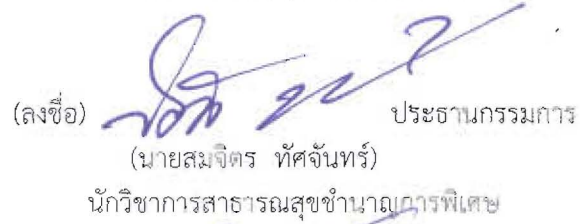 (ลงชื่อ) ประธานกรรมการ
(นายสมจิตร ทัศจันทร์)
นักวิชาการสาธารณสุขชำนาญการพิเศษ